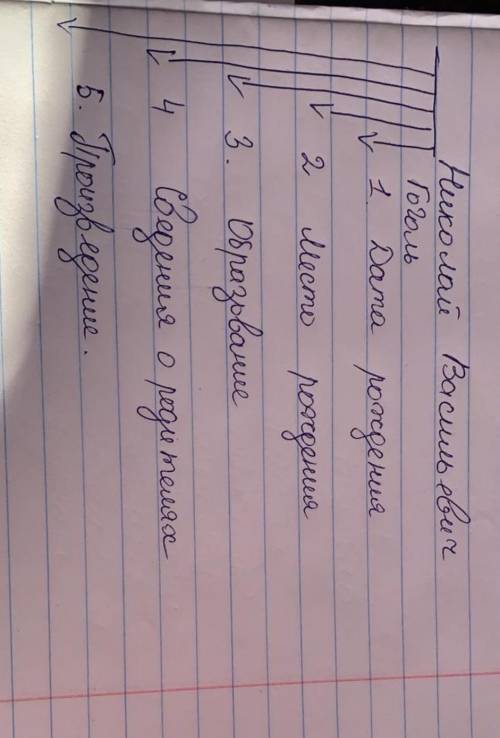 Николай Васильевич
Гоголь
1. Дата рождения
2 Место рождения
3. Образование
4 Сведения о родителях
5. Произведение.